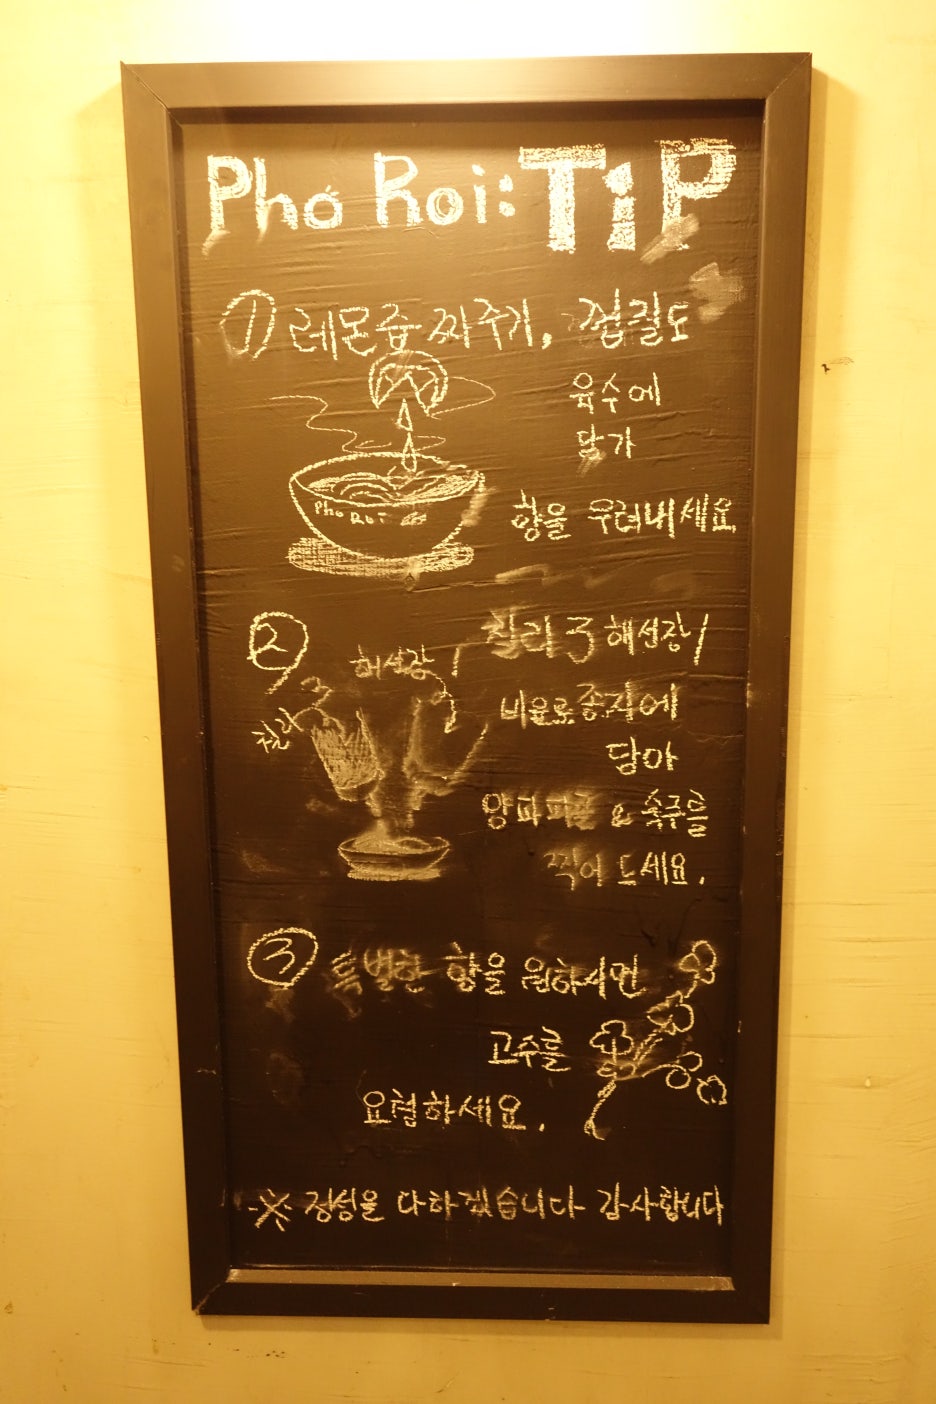 Pho Roi: TiP
① 레몬즙 짜주기, 껍질도
육수에
담가
Pho Roi
향을 우려내세요
② 칠리 3 해선장 1
해선장 1
칠리 3
비율로 종지에
담아
양파피클 & 숙주를
찍어 드세요.
③ 특별한 향을 원하시면
고수를
요청하세요.
※ 정성을 다하겠습니다 감사합니다